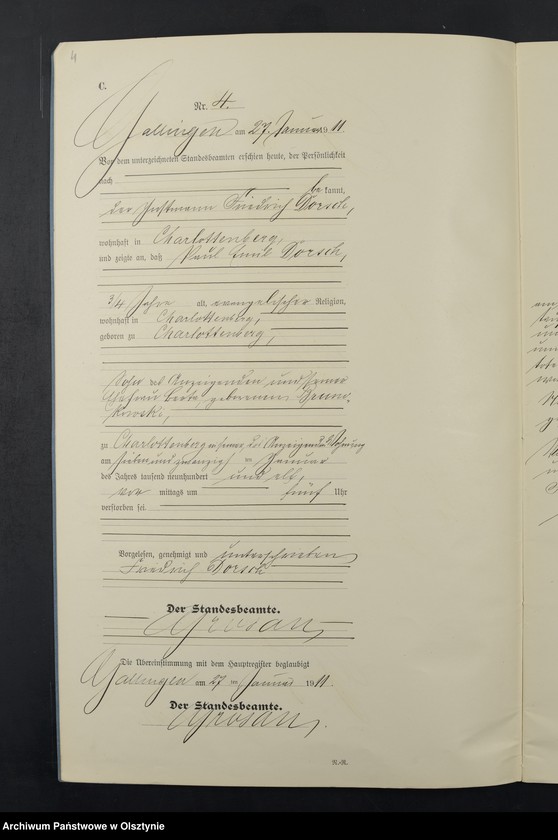 4
C.
Nr. 4.
Gallingen am 27. Januar 1911.
Vor dem unterzeichneten Standesbeamten erschien heute, der Persönlichkeit
nach
be kannt,
der Instmann Friedrich Dorsch,
wohnhaft in Charlottenberg,
und zeigte an, daß Paul Emil Dorsch,
3/4 Jahre alt, evangelischer Religion,
wohnhaft in Charlottenberg,
geboren zu Charlottenberg,
Sohn des Anzeigenden und seiner
Ehefrau Berta, geborenen
zu Charlottenberg in seiner, des Anzeigenden Wohnung
am siebenundzwanzig ten Januar
des Jahres tausend neunhundert und elf,
vor mittags um fünf Uhr
verstorben sei.
Vorgelesen, genehmigt und unterschrieben
Friedrich Dorsch
Der Standesbeamte.
Die Übereinstimmung mit dem Hauptregister beglaubigt
Gallingen am 27 ten Januar 1911.
Der Standesbeamte.
Archiwum Państwowe w Olsztynie